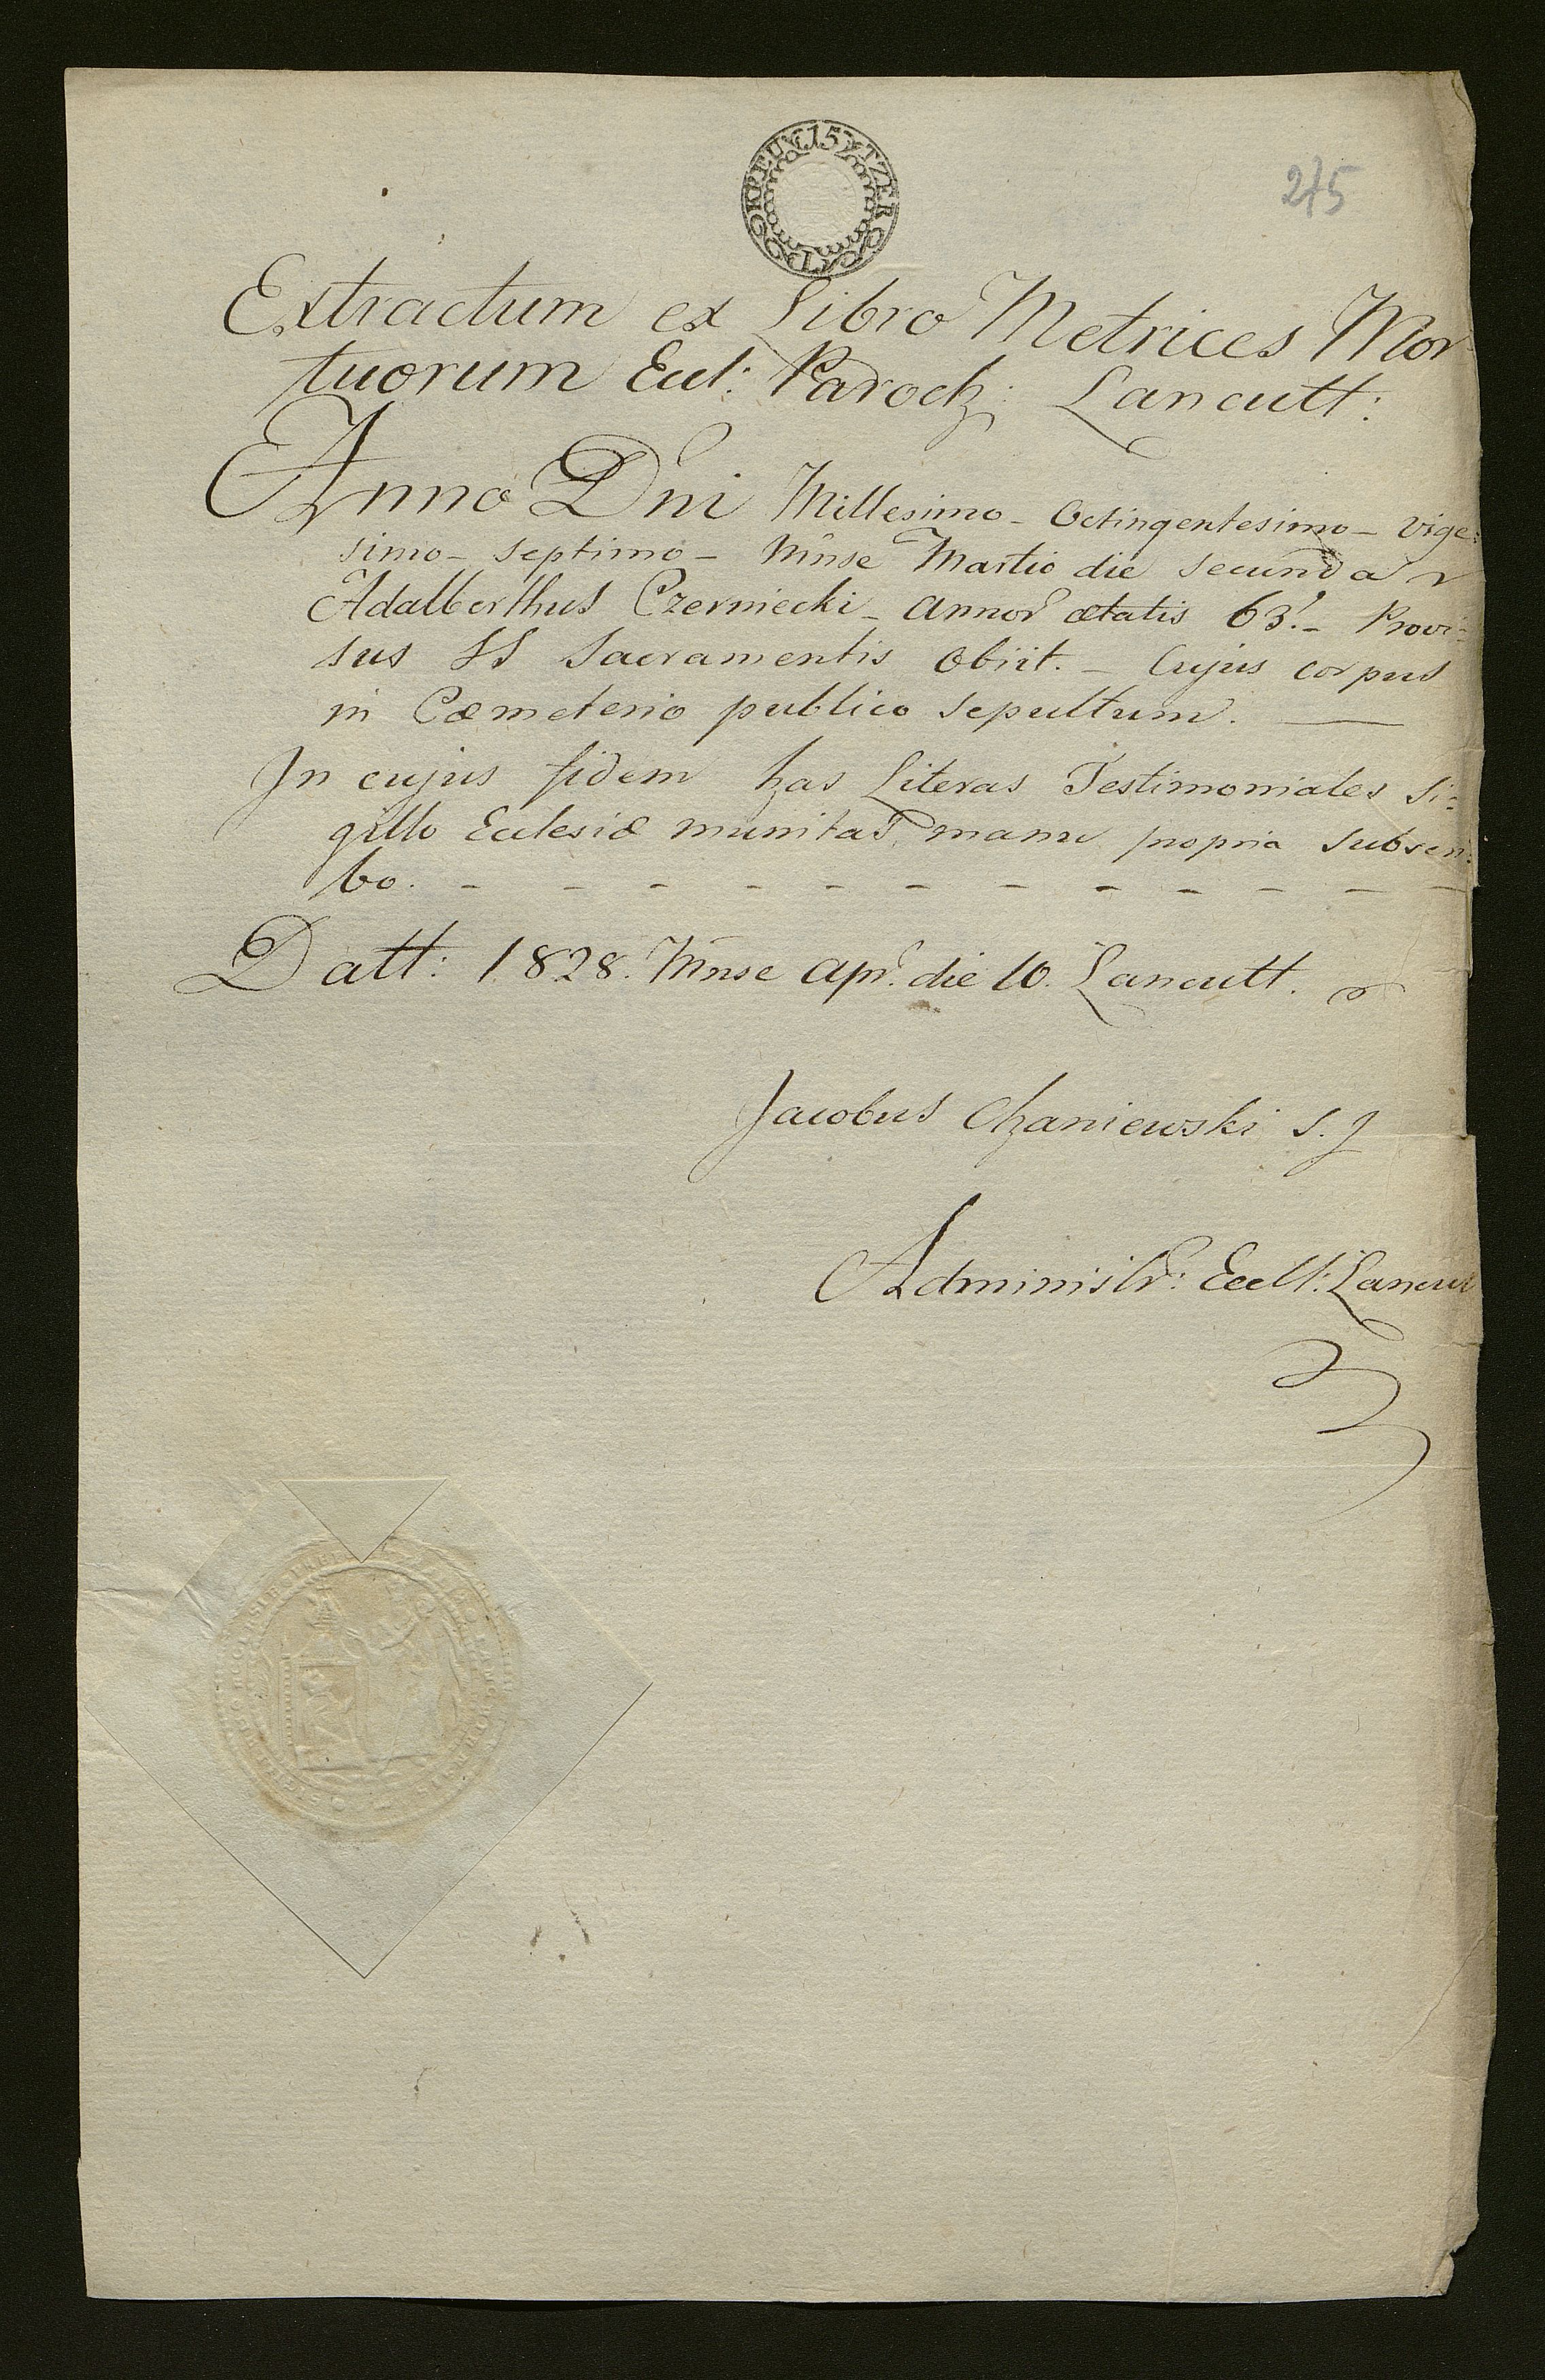 15 KREUTZER
215
Extractum ex Libro Metrices Mor
tuorum Eccl: Paroch: Lancutt:
Anno Dni Millesimo - Octingentesimo - Vige:
simo - septimo - Mnse Martio die secunda
Adalberthus Czerniecki - annor ætatis 63. - Provi=
sus SS Sacramentis Obiit. - Cujus corpus
in Cœmeterio publico sepultum. —
In cujus fidem has Literas Testimoniales Si=
gillo Eclesiæ munitas manu propria subscri:
bo. - - - - - - - - - - - -
Datt: 1828. Mnse Apr. die 10. Lancutt.
Jacobus Chaniewski S.J
Administr: Eccll: Lancut